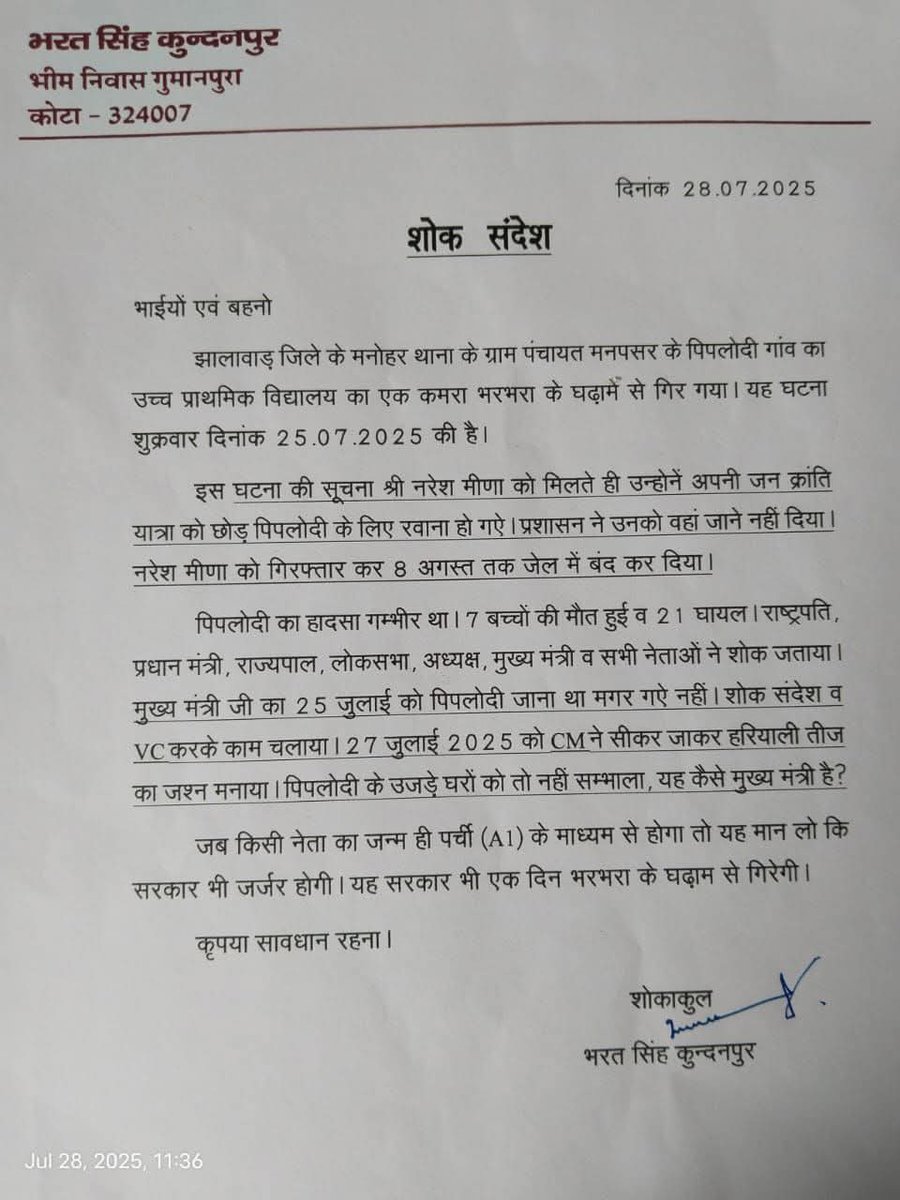 भरत सिंह कुन्दनपुर
भीम निवास गुमानपुरा
कोटा - 324007
दिनांक 28.07.2025
शोक संदेश
भाईयों एवं बहनो
झालावाड़ जिले के मनोहर थाना के ग्राम पंचायत मनपसर के पिपलोदी गांव का
उच्च प्राथमिक विद्यालय का एक कमरा भरभरा के घढ़ामें से गिर गया। यह घटना
शुक्रवार दिनांक 25.07.2025 की है।
इस घटना की सूचना श्री नरेश मीणा को मिलते ही उन्होनें अपनी जन क्रांति
यात्रा को छोड़ पिपलोदी के लिए रवाना हो गऐ। प्रशासन ने उनको वहां जाने नहीं दिया।
नरेश मीणा को गिरफ्तार कर 8 अगस्त तक जेल में बंद कर दिया।
पिपलोदी का हादसा गम्भीर था। 7 बच्चों की मौत हुई व 21 घायल। राष्ट्रपति,
प्रधान मंत्री, राज्यपाल, लोकसभा, अध्यक्ष, मुख्य मंत्री व सभी नेताओं ने शोक जताया।
मुख्य मंत्री जी का 25 जुलाई को पिपलोदी जाना था मगर गऐ नहीं। शोक संदेश व
VC करके काम चलाया। 27 जुलाई 2025 को CM ने सीकर जाकर हरियाली तीज
का जश्न मनाया। पिपलोदी के उजड़े घरों को तो नहीं सम्भाला, यह कैसे मुख्य मंत्री है?
जब किसी नेता का जन्म ही पर्ची (A1) के माध्यम से होगा तो यह मान लो कि
सरकार भी जर्जर होगी। यह सरकार भी एक दिन भरभरा के घढ़ाम से गिरेगी।
कृपया सावधान रहना।
शोकाकुल
भरत सिंह कुन्दनपुर
Jul 28, 2025, 11:36